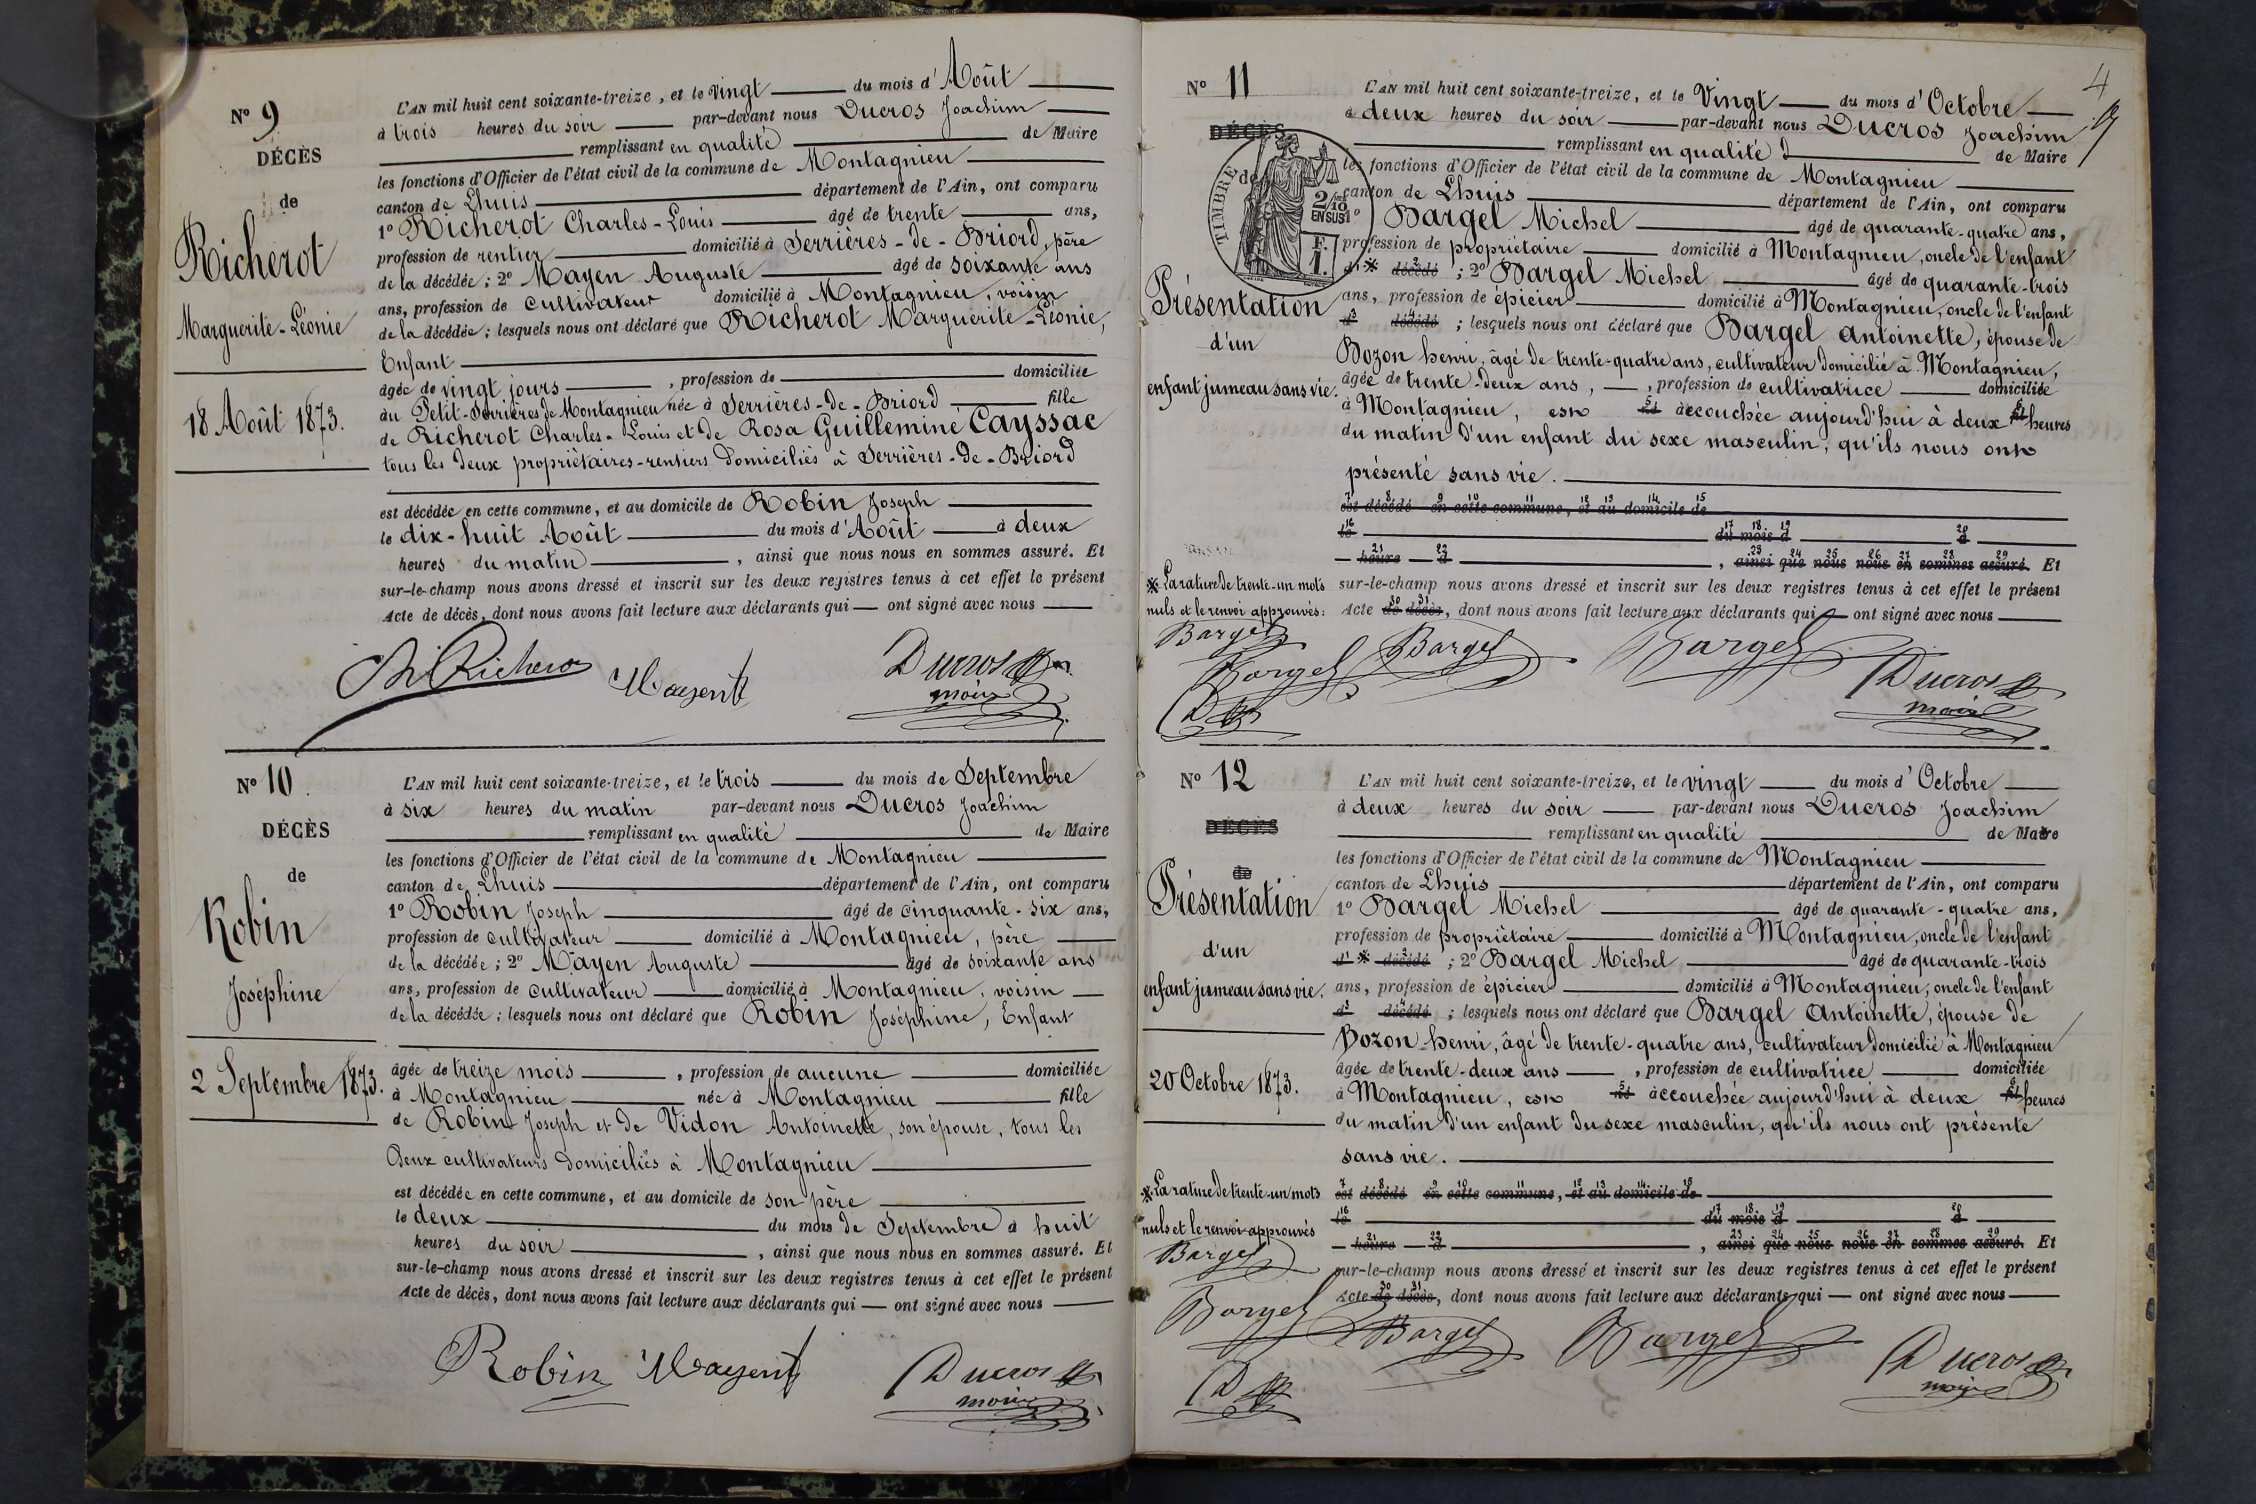 N° 9
DÉCÈS
de
Richerot
Marguerite-Léonie
18 Août 1873.
L'AN mil huit cent soixante-treize, et le vingt du mois d'Août
à trois heures du soir par-devant nous Ducros Joachim
remplissant en qualité de Maire
les fonctions d'Officier de l'état civil de la commune de Montagnieu
canton de Lhuis département de l'Ain, ont comparu
1° Richerot Charles-Louis âgé de trente ans,
profession de rentier domicilié à Serrières-de-Briord, père
de la décédée ; 2° Mayen Auguste âgé de soixante ans
ans, profession de cultivateur domicilié à Montagnieu, voisin
de la décédée ; lesquels nous ont déclaré que Richerot Marguerite-Léonie,
Enfant
âgée de vingt jours, profession de domiciliée
au Petit-Serrières de Montagnieu née à Serrières-de-Briord fille
de Richerot Charles-Louis et de Rosa Guillemine Cayssac
tous les deux propriétaires-rentiers domiciliés à Serrières-de-Briord
est décédée en cette commune, et au domicile de Robin Joseph
le dix-huit Août du mois d'Août à deux
heures du matin, ainsi que nous nous en sommes assuré. Et
sur-le-champ nous avons dressé et inscrit sur les deux registres tenus à cet effet le présent
Acte de décès, dont nous avons fait lecture aux déclarants qui ont signé avec nous
Richero Mayent Ducros
maire
N° 10
DÉCÈS
de
Robin
Joséphine
2 Septembre 1873.
L'AN mil huit cent soixante-treize, et le trois du mois de Septembre
à six heures du matin par-devant nous Ducros Joachim
remplissant en qualité de Maire
les fonctions d'Officier de l'état civil de la commune de Montagnieu
canton de Lhuis département de l'Ain, ont comparu
1° Robin Joseph âgé de cinquante-six ans,
profession de cultivateur domicilié à Montagnieu, père
de la décédée ; 2° Mayen Auguste âgé de soixante ans
ans, profession de cultivateur domicilié à Montagnieu, voisin
de la décédée ; lesquels nous ont déclaré que Robin Joséphine, Enfant
âgée de treize mois, profession de aucune domiciliée
à Montagnieu née à Montagnieu fille
de Robin Joseph et de Vidon Antoinette, son épouse, tous les
deux cultivateurs domiciliés à Montagnieu
est décédée en cette commune, et au domicile de son père
le deux du mois de Septembre à huit
heures du soir, ainsi que nous nous en sommes assuré. Et
sur-le-champ nous avons dressé et inscrit sur les deux registres tenus à cet effet le présent
Acte de décès, dont nous avons fait lecture aux déclarants qui ont signé avec nous
Robin Mayent Ducros
maire
4
N° 11
DÉCÈS
de
TIMBRE
2/10
EN SUS
F.
1.
Présentation
d'un
enfant jumeau sans vie.
L'AN mil huit cent soixante-treize, et le Vingt du mois d'Octobre
à deux heures du soir par-devant nous Ducros Joachim
remplissant en qualité de Maire
les fonctions d'Officier de l'état civil de la commune de Montagnieu
canton de Lhuis département de l'Ain, ont comparu
1° Bargel Michel âgé de quarante-quatre ans,
profession de propriétaire domicilié à Montagnieu, oncle de l'enfant
d1 * décédé2 ; 2° Bargel Michel âgé de quarante-trois
ans, profession de épicier domicilié à Montagnieu, oncle de l'enfant
d3 décédé4 ; lesquels nous ont déclaré que Bargel Antoinette, épouse de
Bozon henri, âgé de trente-quatre ans, cultivateur domicilié à Montagnieu,
âgée de trente-deux ans, profession de cultivatrice domiciliée
à Montagnieu, est né5 accouchée aujourd'hui à deux fil6 heures
du matin d'un enfant du sexe masculin, qu'ils nous ont
présenté sans vie.
7 8 9 10 11 12 13 14 15
est décédé en cette commune, et au domicile de
16 17 18 19 20
le du mois d à
21 22 23 24 25 26 27 28 29
heure d, ainsi que nous nous en sommes assuré. Et
* La rature de trente-un mots
nuls et le renvoi approuvés :
sur-le-champ nous avons dressé et inscrit sur les deux registres tenus à cet effet le présent
30 31
Acte de décès, dont nous avons fait lecture aux déclarants qui ont signé avec nous
Bargel
Bargel Bargel Bargel Ducros
maire
N° 12
DÉCÈS
de
Présentation
d'un
enfant jumeau sans vie.
20 Octobre 1873.
L'AN mil huit cent soixante-treize, et le vingt du mois d'Octobre
à deux heures du soir par-devant nous Ducros Joachim
remplissant en qualité de Maire
les fonctions d'Officier de l'état civil de la commune de Montagnieu
canton de Lhuis département de l'Ain, ont comparu
1° Bargel Michel âgé de quarante-quatre ans,
profession de propriétaire domicilié à Montagnieu, oncle de l'enfant
d1 * décédé2 ; 2° Bargel Michel âgé de quarante-trois
ans, profession de épicier domicilié à Montagnieu, oncle de l'enfant
d3 décédé4 ; lesquels nous ont déclaré que Bargel Antoinette, épouse de
Bozon henri, âgé de trente-quatre ans, cultivateur domicilié à Montagnieu
âgée de trente-deux ans, profession de cultivatrice domiciliée
à Montagnieu, est né5 accouchée aujourd'hui à deux fil6 heures
du matin d'un enfant du sexe masculin, qu'ils nous ont présenté
sans vie.
7 8 9 10 11 12 13 14 15
est décédé en cette commune, et au domicile de
16 17 18 19 20
le du mois d à
21 22 23 24 25 26 27 28 29
heure d, ainsi que nous nous en sommes assuré. Et
* La rature de trente-un mots
nuls et le renvoi approuvés
sur-le-champ nous avons dressé et inscrit sur les deux registres tenus à cet effet le présent
30 31
Acte de décès, dont nous avons fait lecture aux déclarants qui ont signé avec nous
Bargel
Bargel Bargel Bargel Ducros
maire